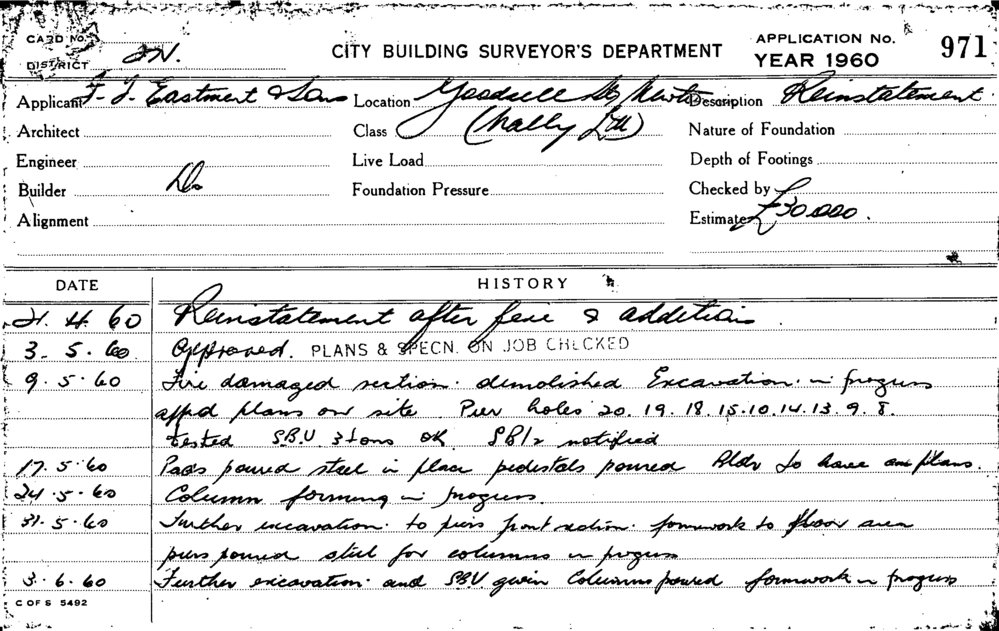 CARD No.
DISTRICT
CITY BUILDING SURVEYOR'S DEPARTMENT
APPLICATION No. 971
YEAR 1960
Applicant F. J. Eastment & Sons Location Goodsell St, Newtn Description Reinstatement
Architect Class (Nally Ltd) Nature of Foundation
Engineer Live Load Depth of Footings
Builder Do Foundation Pressure Checked by
Alignment Estimate £30,000.
DATE HISTORY
21. 4. 60 Reinstatement after fire & additions
3. 5. 60 Approved. PLANS & SPECN. ON JOB CHECKED
9. 5. 60 Fire damaged section. demolished Excavation. in progress
appd plans on site Pier holes 20. 19. 18. 15. 10. 14. 13. 9. 8.
tested S.B.V 3 tons OK notified
17. 5. 60 Pads poured steel in place pedestals poured Bldr to have plans.
24. 5. 60 Column forming in progress
31. 5. 60 Further excavation. to piers front section. formwork to floor area
piers poured steel for columns in progress
3. 6. 60 Further excavation. and SBV given Columns poured formwork in progress
C OF S 5492